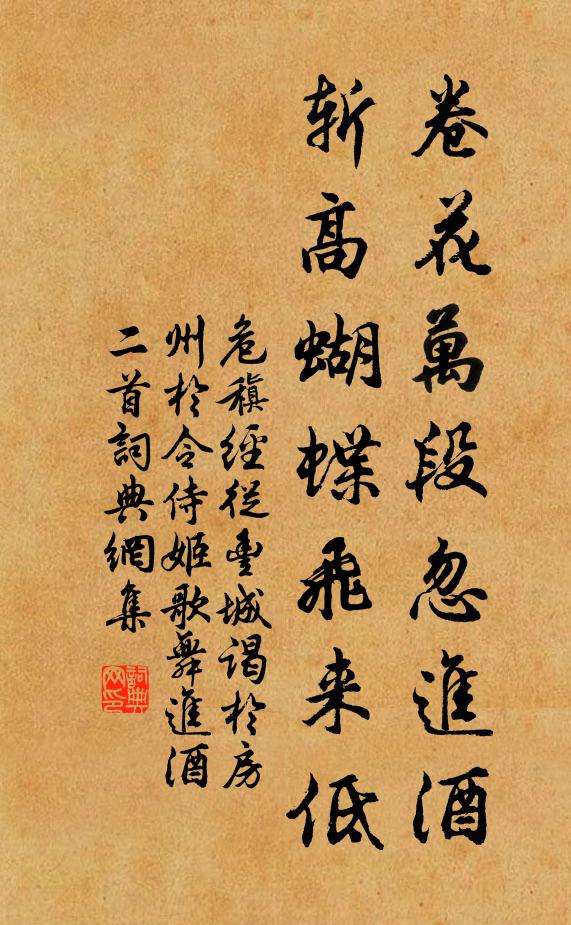 卷花萬段忽進酒
斬高蝴蝶飛来低
危稹經從豐城謁於房
州於令侍姬歌舞進酒
二首詞典網集
詞典
网印